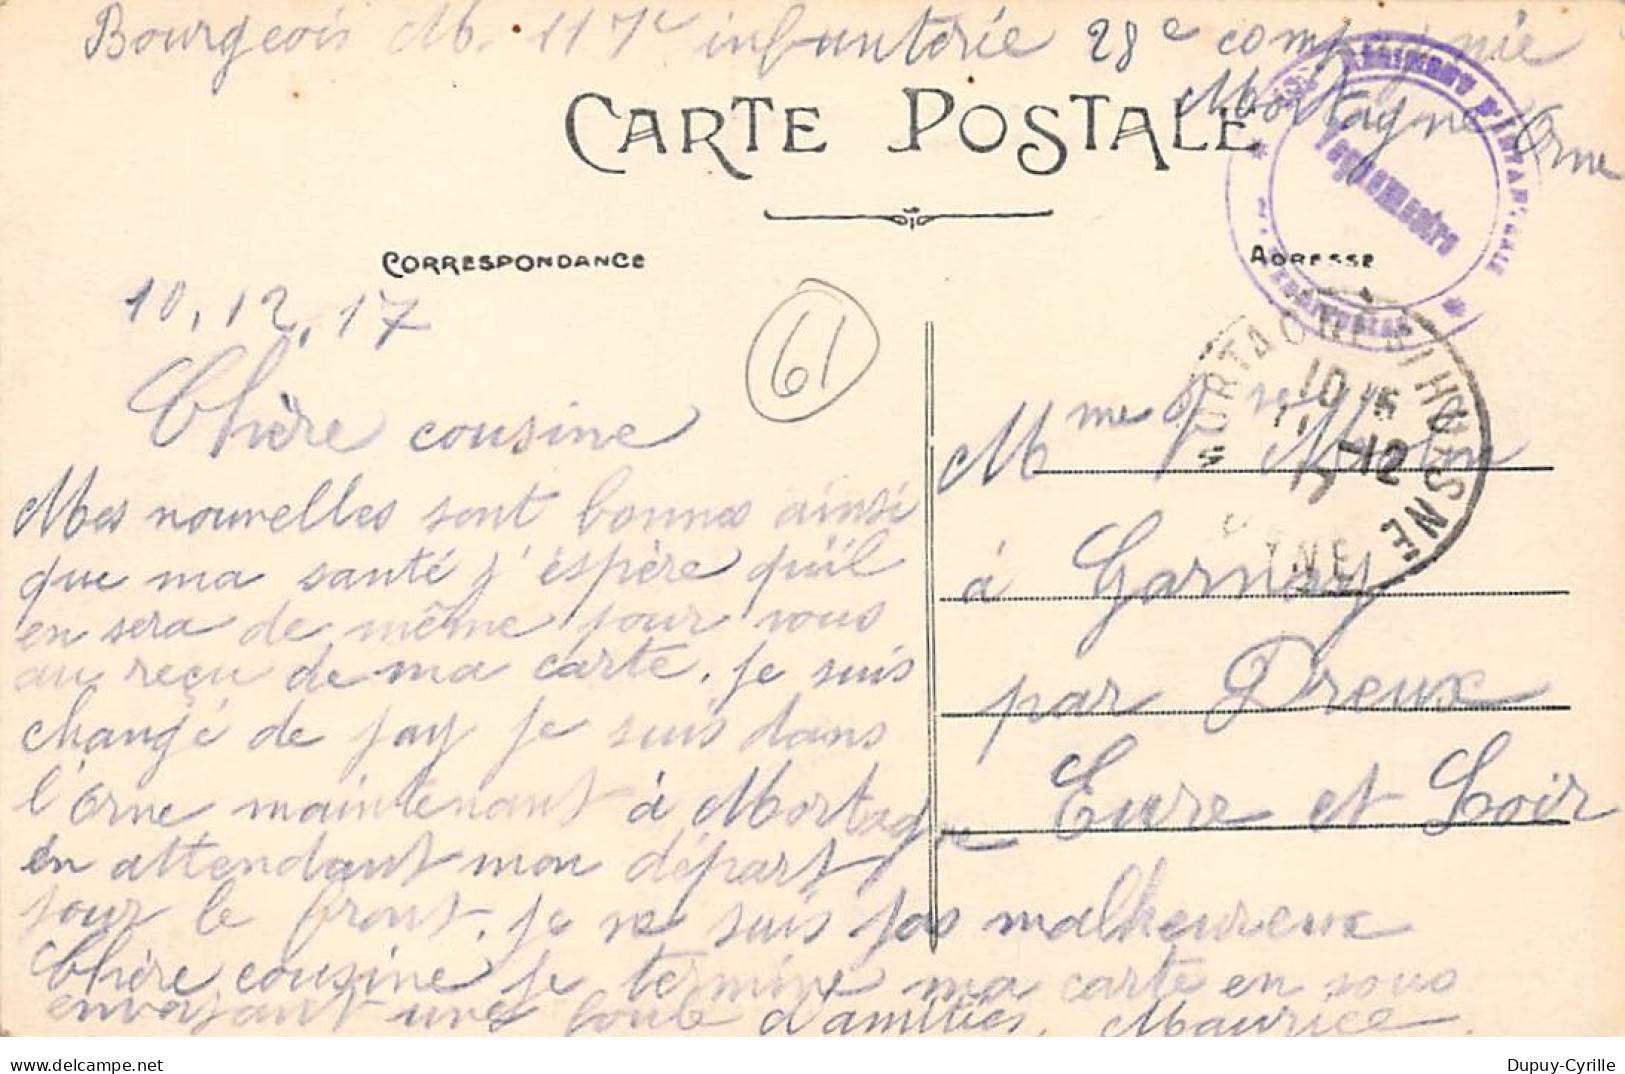 Bourgeois M. 117e infanterie 28e compagnie
Mortagne Orne
CARTE POSTALE
RÉGIMENT D'INFANTERIE
Vaguemestre
CORRESPONDANCE
ADRESSE
10.12.17
61
MORTAGNE S/ HUISNE
10 15
11 -12
17
ORNE
Chère cousine
Mes nouvelles sont bonnes ainsi
que ma santé j'éspère qu'il
en sera de même pour vous
au reçu de ma carte. je suis
changé de pay je suis dans
l'Orne maintenant à Mortagne
en attendant mon départ
pour le front. je ne suis pas malheureux
Chère cousine je termine ma carte en vous
envoyant une foule d'amitiés. Maurice.
Mme
à Garnay
par Dreux
Eure et Loir
Dupuy-Cyrille